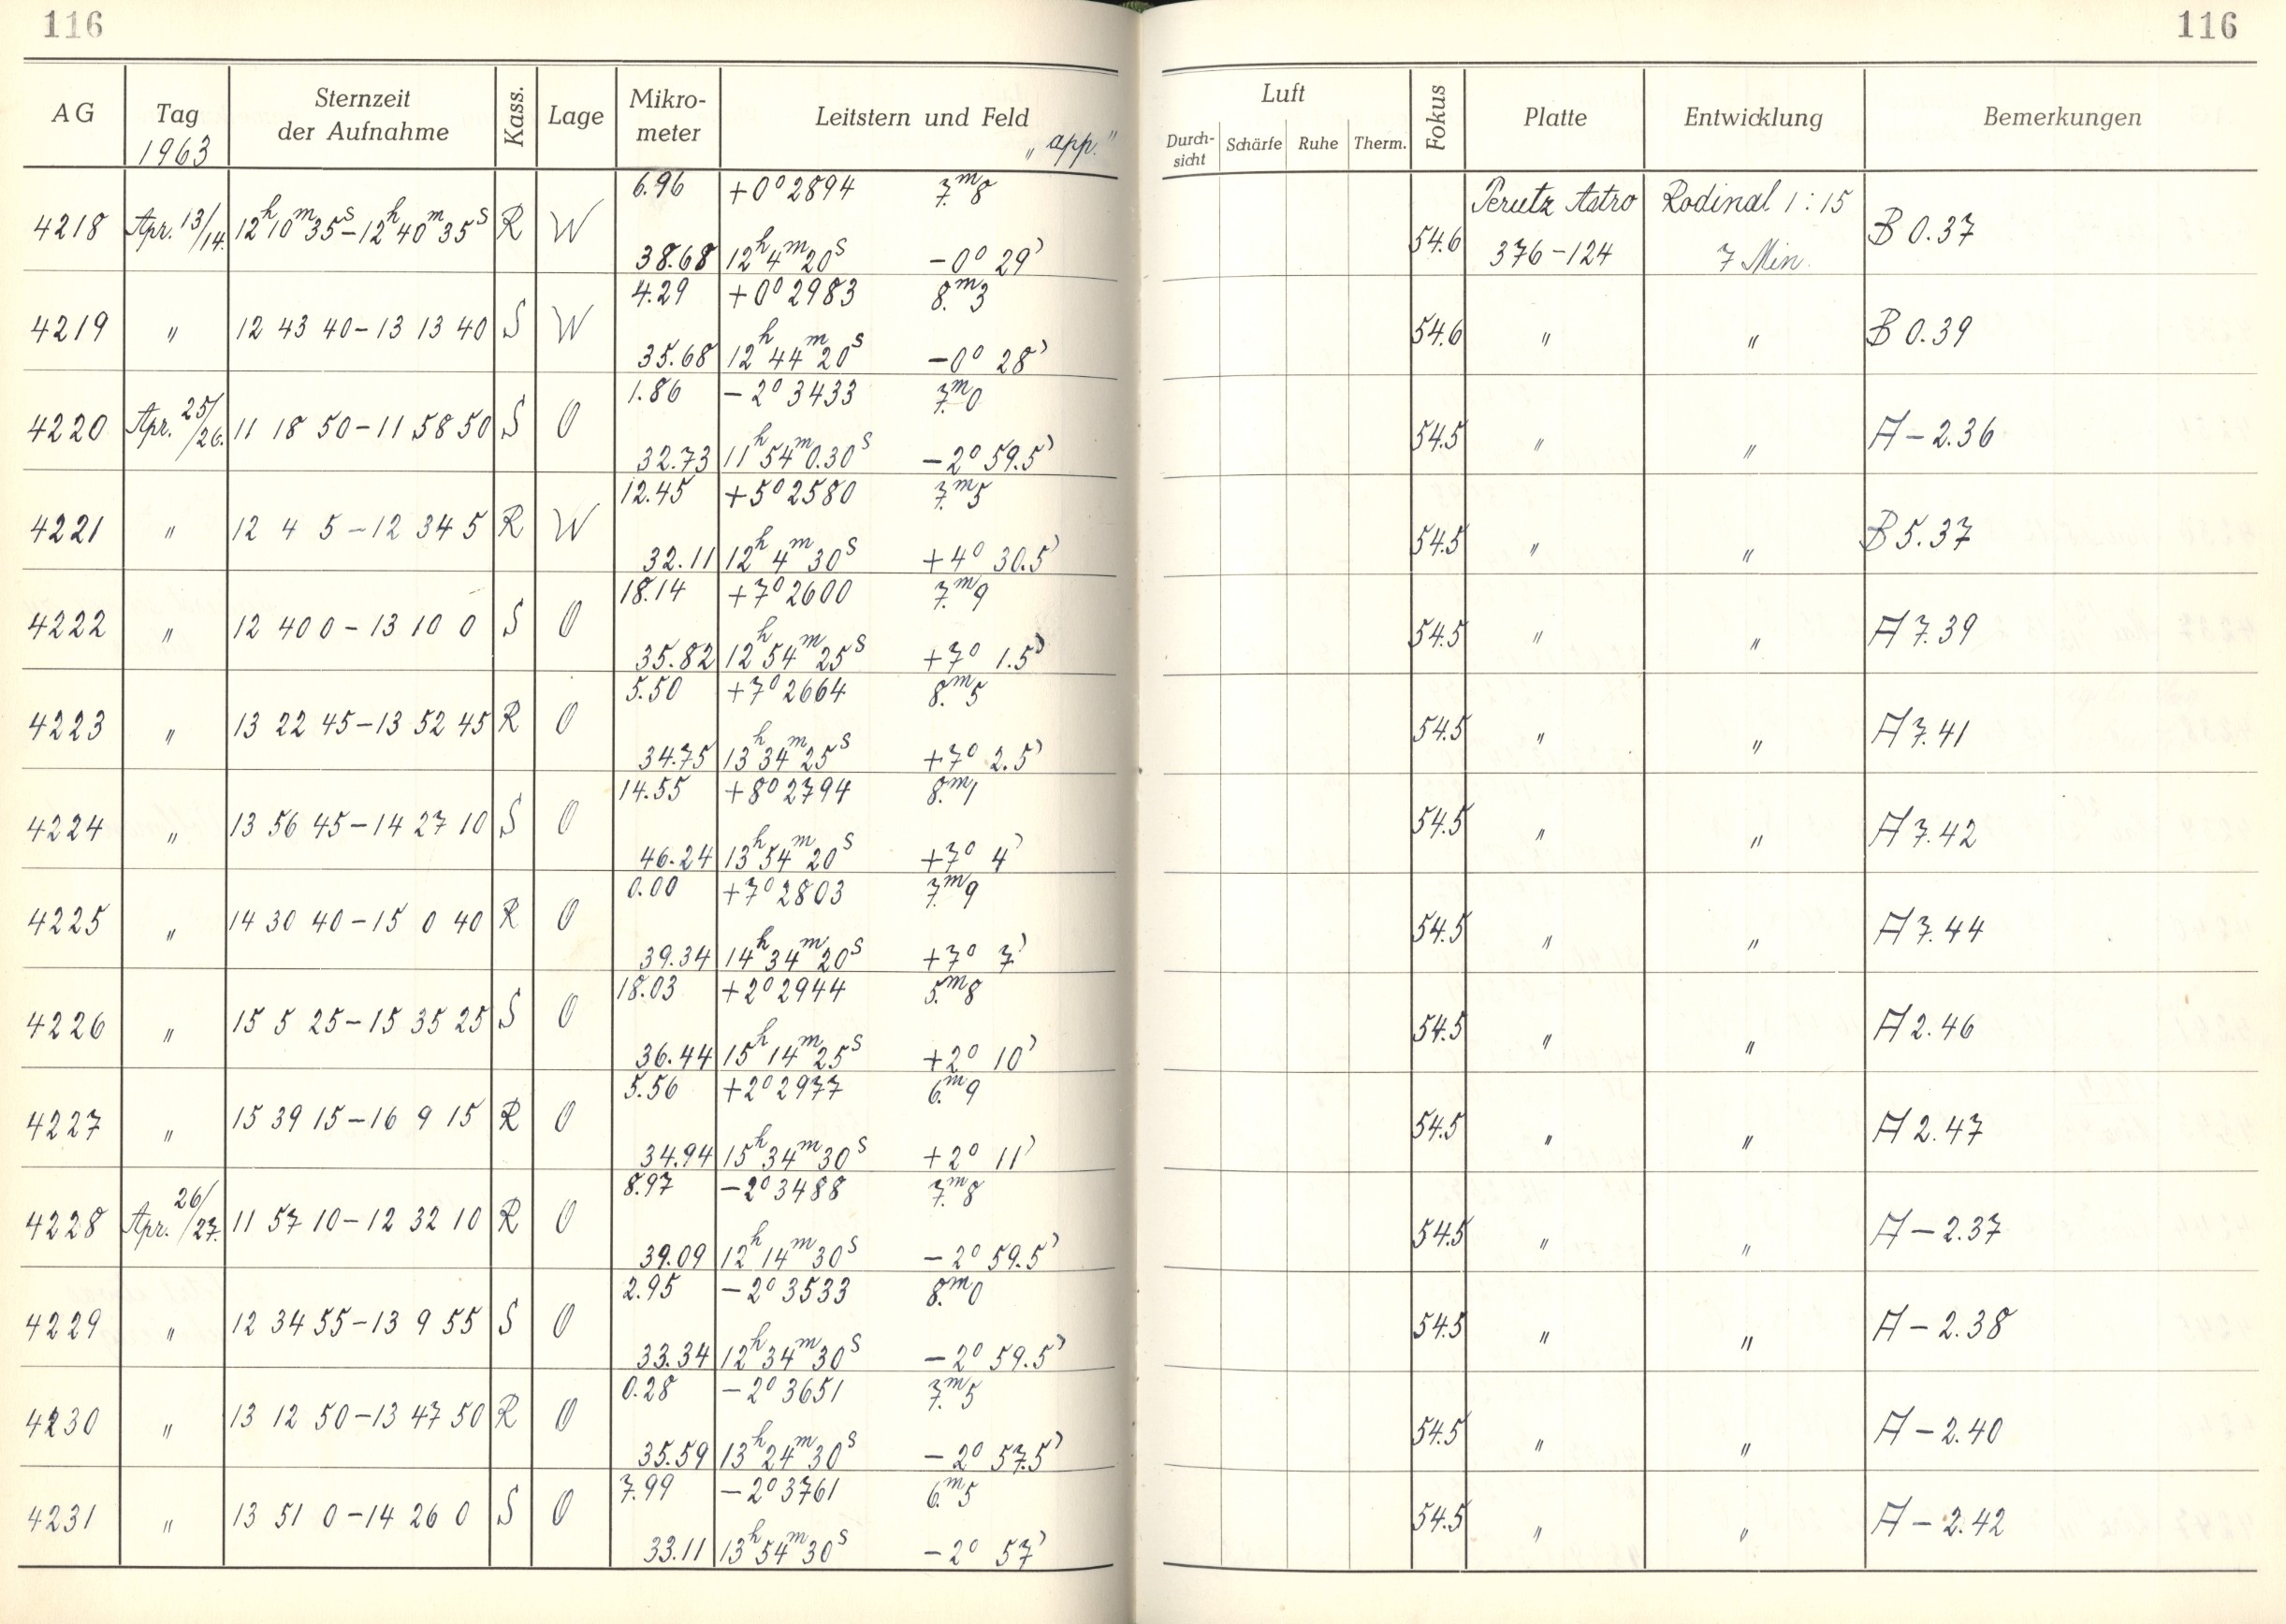 116
116
AG Tag 1963 Sternzeit der Aufnahme Kass. Lage Mikro-meter Leitstern und Feld „app."
Luft Durch-sicht Schärfe Ruhe Therm. Fokus Platte Entwicklung Bemerkungen
6.96 +0° 2894 7.m8 Perutz Astro Rodinal 1:15
4218 Apr. 13/14. 12h10m35s–12h40m35s R W 54.6 B 0.37
38.68 12h4m20s –0° 29' 376–124 7 Min.
4.29 +0° 2983 8.m3
4219 " 12 43 40–13 13 40 S W 54.6 " " B 0.39
35.68 12h44m20s –0° 28'
1.86 –2° 3433 7.m0
4220 Apr. 25/26. 11 18 50–11 58 50 S O 54.5 " " A –2.36
32.73 11h54m0.30s –2° 59.5'
12.45 +5° 2580 7.m5
4221 " 12 4 5–12 34 5 R W 54.5 " " B 5.37
32.11 12h4m30s +4° 30.5'
18.14 +7° 2600 7.m9
4222 " 12 40 0–13 10 0 S O 54.5 " " A 7.39
35.82 12h54m25s +7° 1.5'
5.50 +7° 2664 8.m5
4223 " 13 22 45–13 52 45 R O 54.5 " " A 7.41
34.75 13h34m25s +7° 2.5'
14.55 +8° 2794 8.m1
4224 " 13 56 45–14 27 10 S O 54.5 " " A 7.42
46.24 13h54m20s +7° 4'
0.00 +7° 2803 7.m9
4225 " 14 30 40–15 0 40 R O 54.5 " " A 7.44
39.34 14h34m20s +7° 7'
18.03 +2° 2944 5.m8
4226 " 15 5 25–15 35 25 S O 54.5 " " A 2.46
36.44 15h14m25s +2° 10'
5.56 +2° 2977 6.m9
4227 " 15 39 15–16 9 15 R O 54.5 " " A 2.47
34.94 15h34m30s +2° 11'
8.97 –2° 3488 7.m8
4228 Apr. 26/27. 11 57 10–12 32 10 R O 54.5 " " A –2.37
39.09 12h14m30s –2° 59.5'
2.95 –2° 3533 8.m0
4229 " 12 34 55–13 9 55 S O 54.5 " " A –2.38
33.34 12h34m30s –2° 59.5'
0.28 –2° 3651 7.m5
4230 " 13 12 50–13 47 50 R O 54.5 " " A –2.40
35.59 13h24m30s –2° 57.5'
7.99 –2° 3761 6.m5
4231 " 13 51 0–14 26 0 S O 54.5 " " A –2.42
33.11 13h54m30s –2° 57'